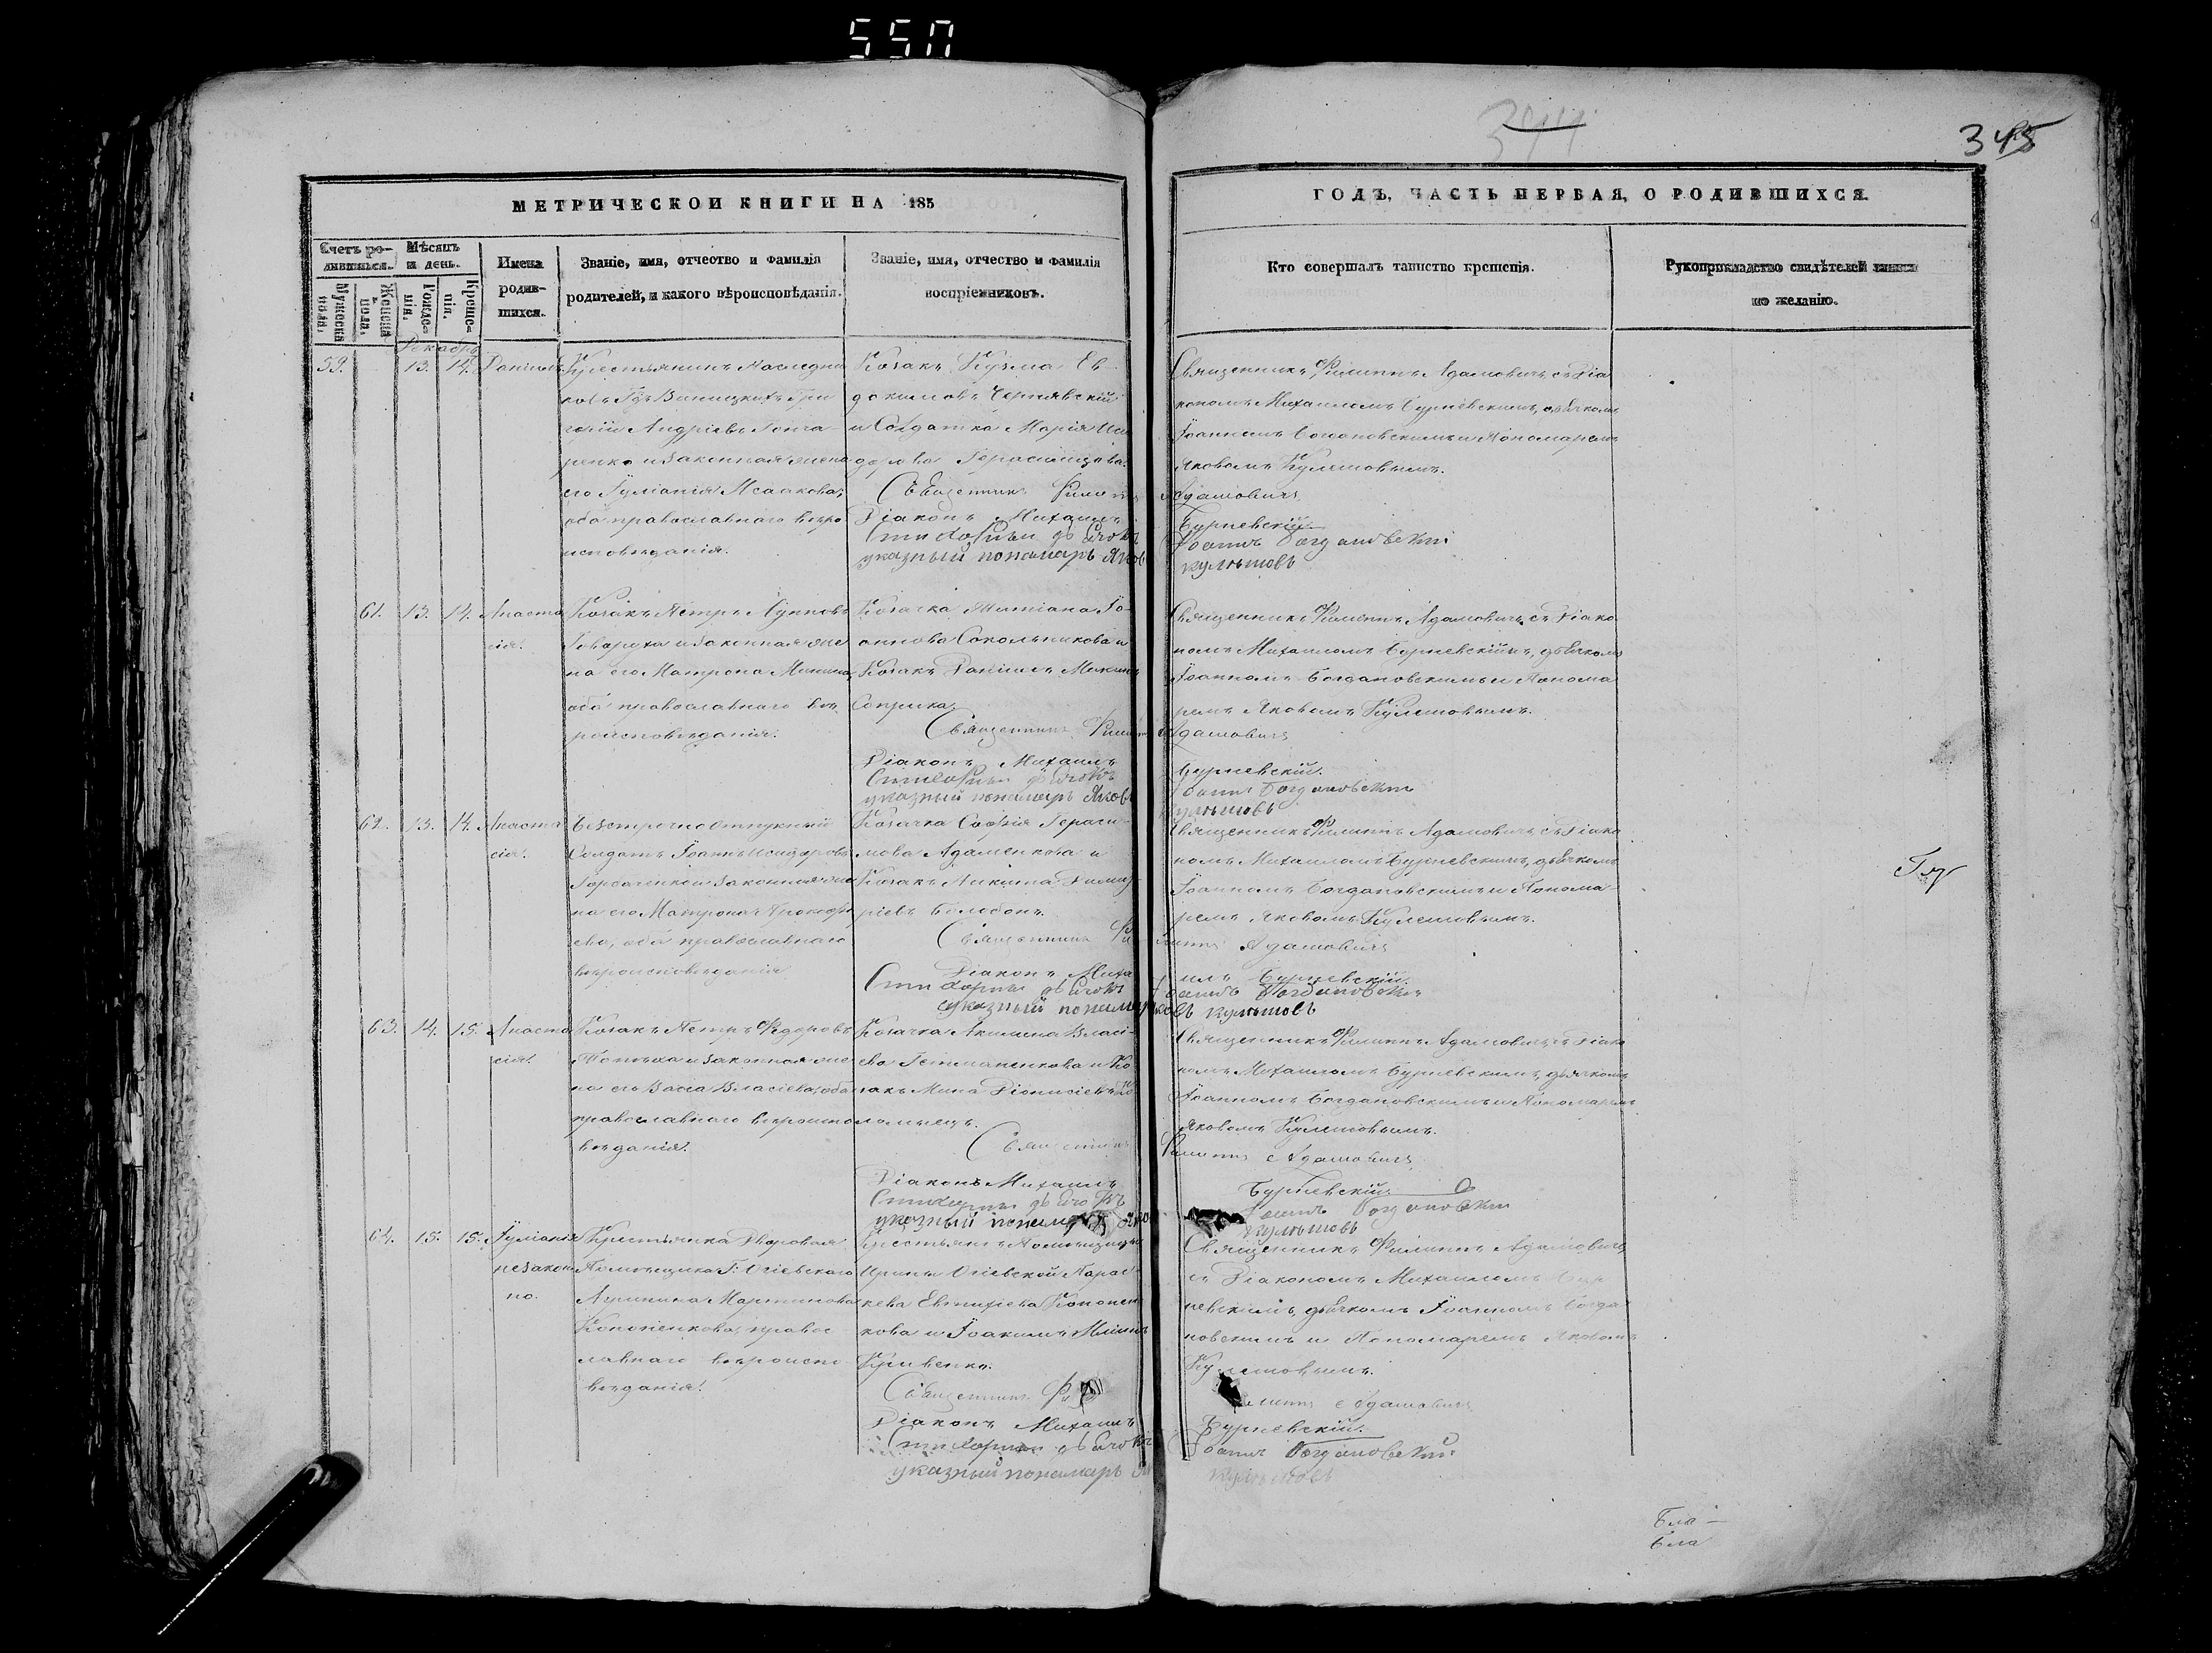 550
344
345
МЕТРИЧЕСКОЙ КНИГИ НА 185
ГОДЪ, ЧАСТЬ ПЕРВАЯ, О РОДИВШИХСЯ.
Счетъ ро-
дившихся.
Мѣсяцъ
и день.
Мужеска
пола.
Женска
пола.
Рожде-
нія.
Креще-
нія.
Имена
родив-
шихся.
Званіе, имя, отчество и фамилія
родителей, и какого вѣроисповѣданія.
Званіе, имя, отчество и фамилія
воспріемниковъ.
Кто совершалъ таинство крещенія.
Рукоприкладство свидѣтелей
по желанію.
Декабрь
59. 13. 14. Даніилъ
Крестьянинъ Наследни
ковъ Гг. Виницкихъ Гри
горій Андріевъ Гонча-
ренко и законная жена
его Іуліанія Исаакова,
оба православнаго вѣро
исповѣданія.
Козакъ Кузма Ев-
докимовъ Чернявскій
и Солдатка Марія Иси
дорова Герасимцова.
Священникъ Филиппъ Адамовичъ
Діаконъ Михаилъ Бурневскій
Стихарный дьячокъ Іоаннъ Богдановскій
указный пономарь Яковъ Кулѣшовъ
Священникъ Филиппъ Адамовичъ, съ Діа
кономъ Михаиломъ Бурневскимъ, дьячкомъ
Іоанномъ Богдановскимъ и Пономаремъ
Яковомъ Кулешовымъ.
61. 13. 14. Анаста
сія.
Козакъ Петръ Лупповъ
Говоруха и законная же
на его Матрона Минина,
оба православнаго вѣ
роисповѣданія.
Козачка Татіана Іо-
аннова Сокольникова и
Козакъ Даніилъ Микит
Соприка.
Священникъ Филиппъ Адамовичъ
Діаконъ Михаилъ Бурневскій.
Стихарный дьячокъ Іоаннъ Богдановскій
указный пономарь Яковъ Кулѣшовъ
Священникъ Филиппъ Адамовичъ, съ Діако
номъ Михаиломъ Бурневскимъ, дьячкомъ
Іоанномъ Богдановскимъ и Понома
ремъ Яковомъ Кулешовымъ.
62. 13. 14. Анаста
сія.
Безсрочноотпускный
Солдатъ Іоаннъ Исидоровъ
Горбаченко и законная же
на его Матрона Прокофі
ева, оба православнаго
вѣроисповѣданія
Козачка Софія Гераси-
мова Адаменкова и
Козакъ Никита Димит
ріевъ Болобонъ.
Священникъ Филиппъ Адамовичъ
Діаконъ Михаилъ Бурневскій.
Стихарный дьячокъ Іоаннъ Богдановскій
указный пономарь Яковъ Кулѣшовъ
Священникъ Филиппъ Адамовичъ, съ Діако
номъ Михаиломъ Бурневскимъ, дьячкомъ
Іоанномъ Богдановскимъ и Понома-
ремъ Яковомъ Кулешовымъ.
63. 14. 15. Анаста
сія.
Козакъ Петръ Федоровъ
и законная же
на его Васса Власіева, оба
православнаго вѣроиспо
вѣданія.
Козачка Акилина Власі-
ева Гетманенкова и Ко
закъ Мина Діонисіевъ Ко
ломыецъ.
Священникъ Филиппъ Адамовичъ
Діаконъ Михаилъ Бурневскій
Стихарный дьячокъ Іоаннъ Богдановскій
указный пономарь Яковъ Кулѣшовъ
Священникъ Филиппъ Адамовичъ, съ Діако
номъ Михаиломъ Бурневскимъ, дьячкомъ
Іоанномъ Богдановскимъ и Пономаремъ
Яковомъ Кулешовымъ.
64. 15. 15. Іуліанія
незакон
но.
Крестьянка Дворовая
Помѣщика Г. Огіевскаго
Агрипина Мартинова
Кононенкова, правос-
лавнаго вѣроиспо
вѣданія.
Крестьяне Помѣщицы
Ирины Огіевской Парас
кева Евтихіева Кононен
кова и Іоакимъ
Кривенко.
Священникъ Филиппъ Адамовичъ
Діаконъ Михаилъ Бурневскій.
Стихарный дьячокъ Іоаннъ Богдановскій
указный пономарь Яковъ Кулѣшовъ
Священникъ Филиппъ Адамовичъ,
съ Діакономъ Михаиломъ Бур
невскимъ, дьячкомъ Іоанномъ Богда
новскимъ и Пономаремъ Яковомъ
Кулешовымъ.
Бла-